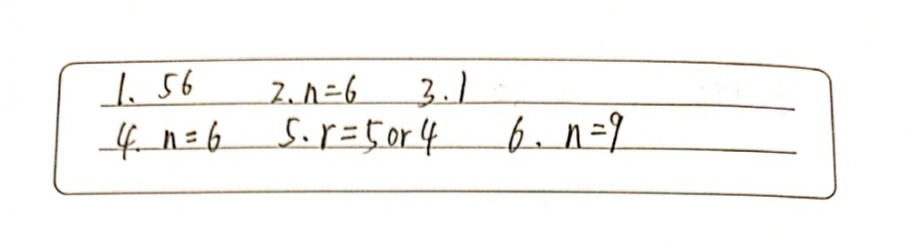 1. 56 2. n=6 3. 1
4. n=6 5. r=5 or 4 6. n=9